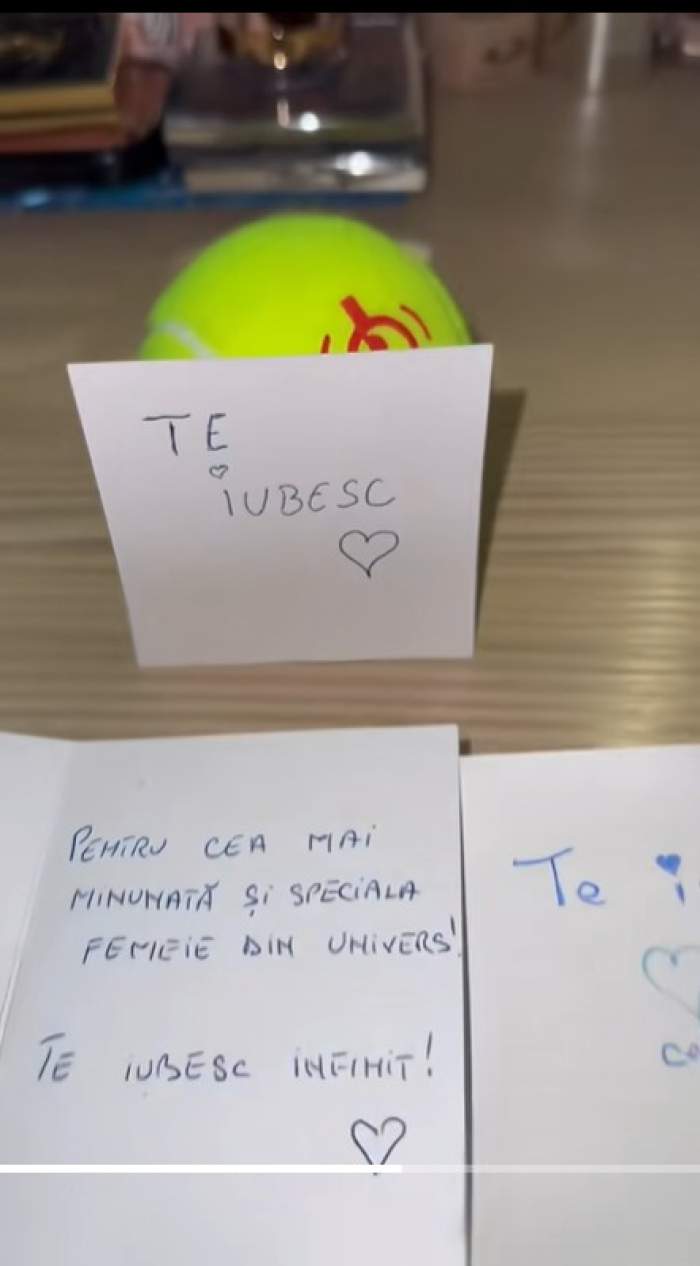 TE
iUBESC
PENTRU CEA MAi
MiNUNATĂ Şi SPECiALA
FEMEiE DiN UNiVERS!
TE iUBESC iNFiNiT!
Te